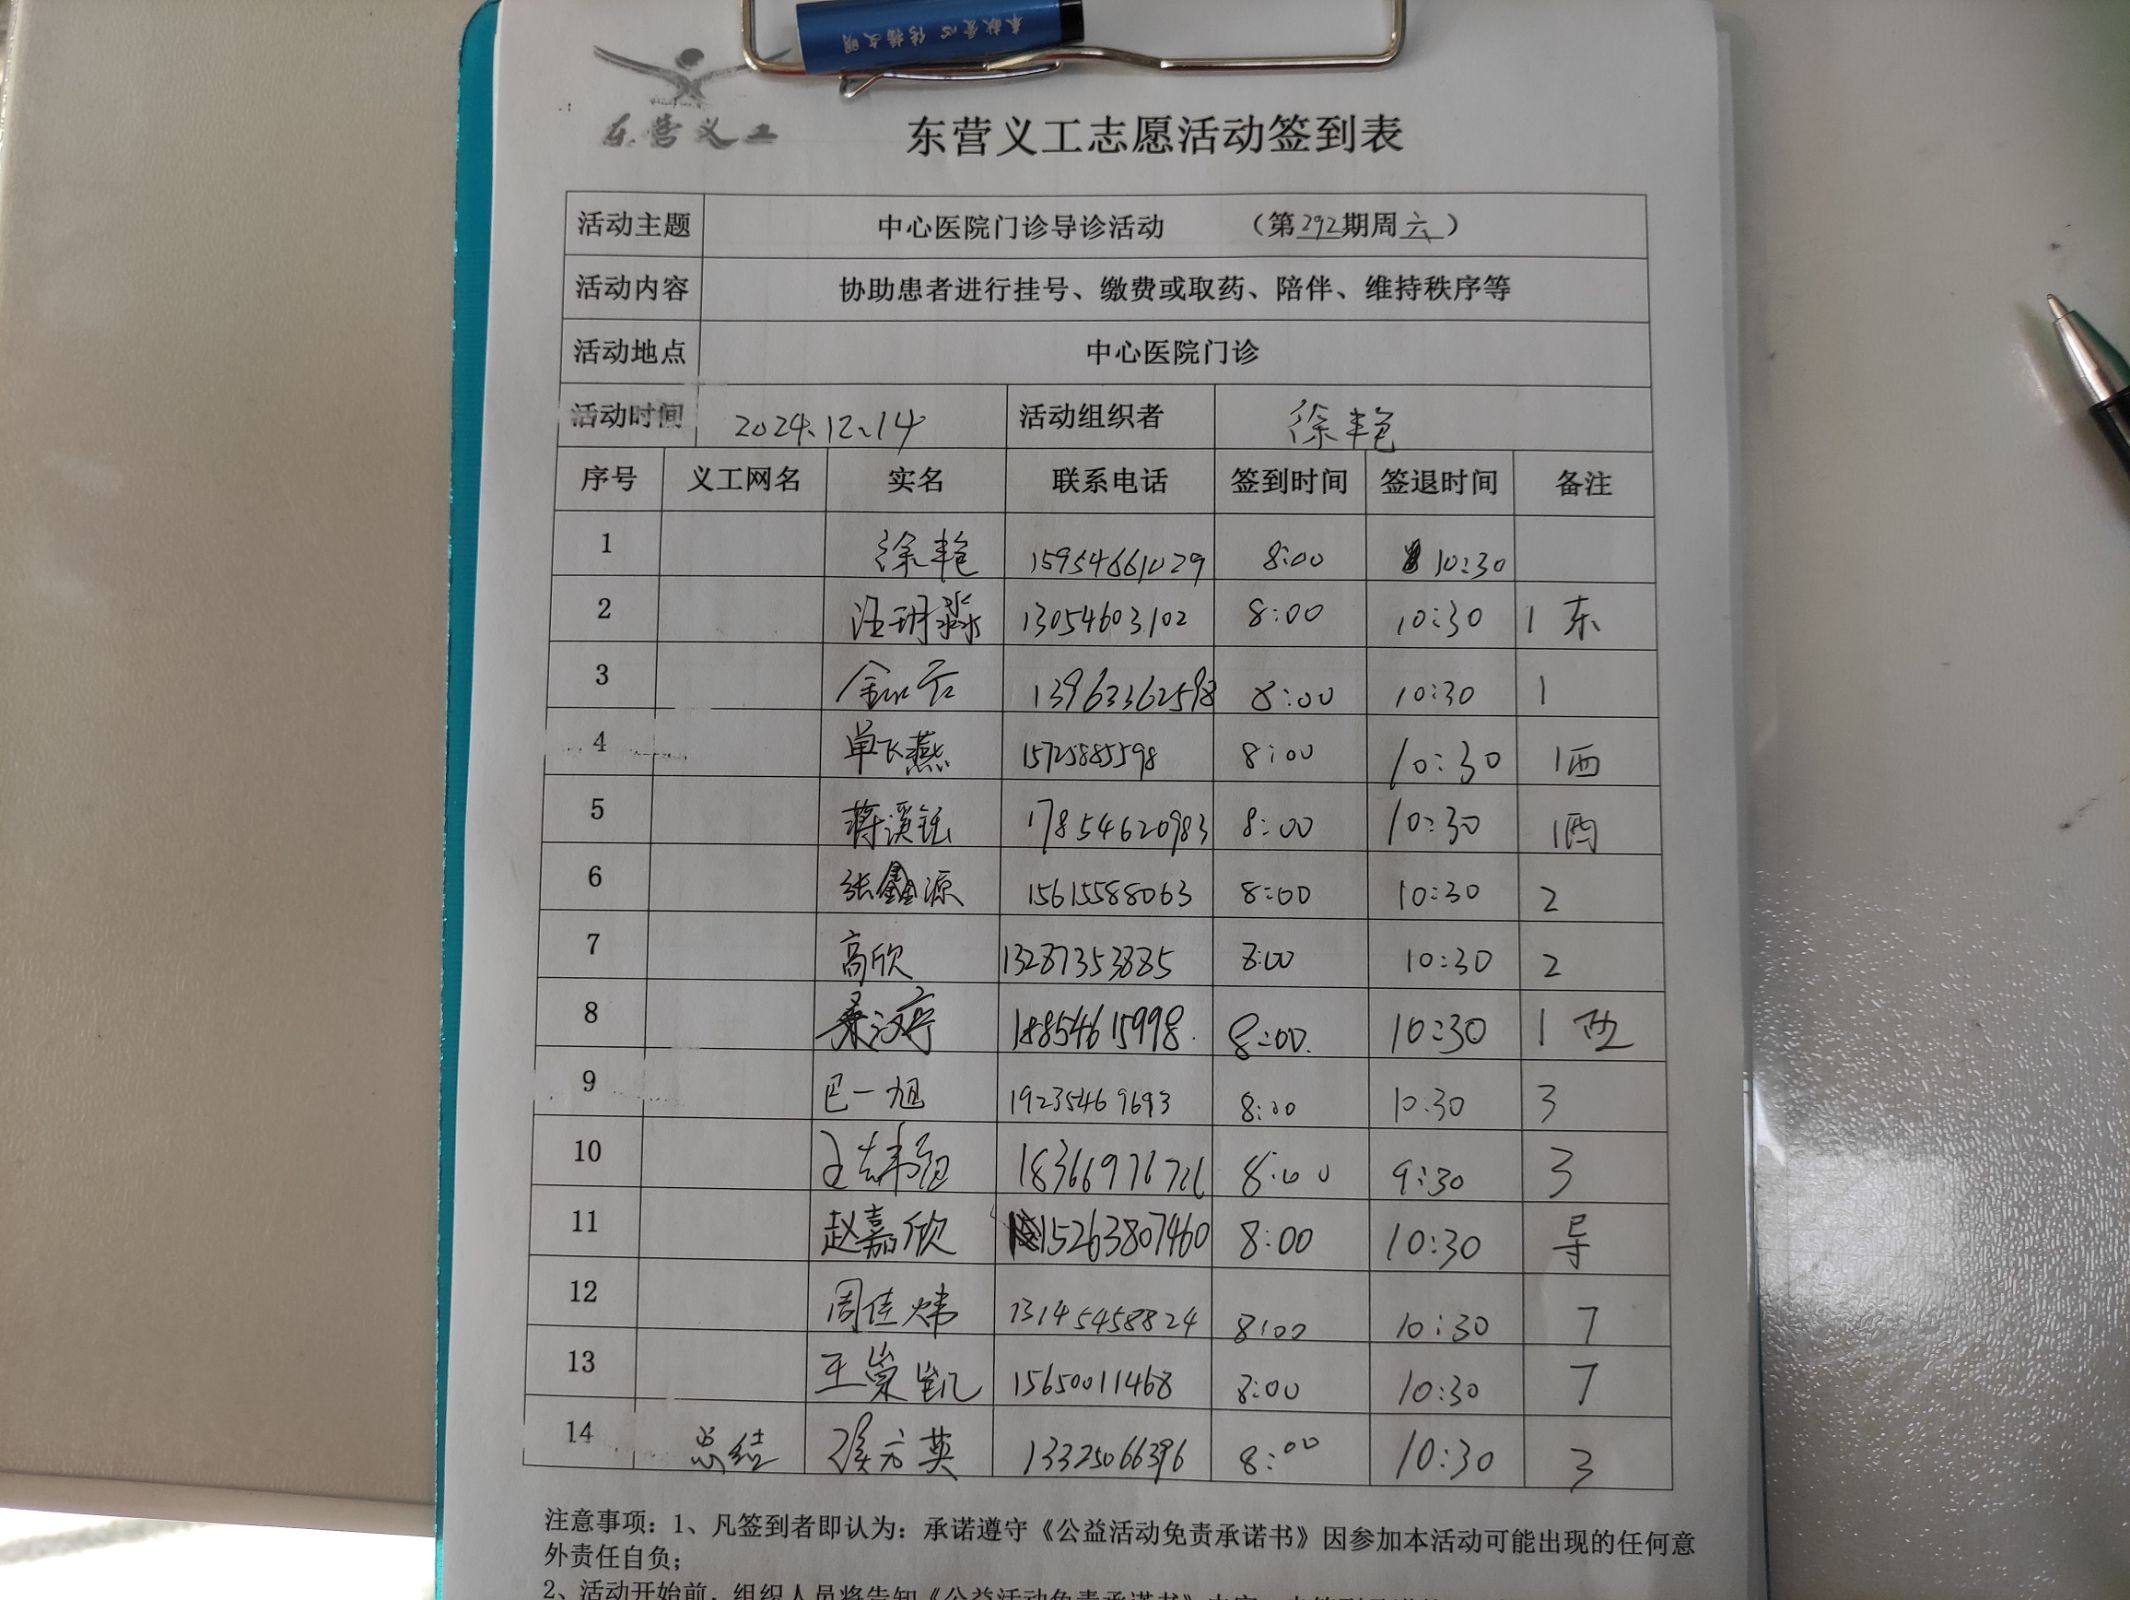 奉献爱心 传播文明
东营义工
东营义工志愿活动签到表
活动主题 中心医院门诊导诊活动 （第292期周六）
活动内容 协助患者进行挂号、缴费或取药、陪伴、维持秩序等
活动地点 中心医院门诊
活动时间 2024.12.14 活动组织者 徐艳
序号 义工网名 实名 联系电话 签到时间 签退时间 备注
1 徐艳 15954661029 8:00 10:30
2 汪玥淼 13054603102 8:00 10:30 1 东
3 13963362598 8:00 10:30 1
4 单飞燕 15725885598 8:00 10:30 1西
5 蒋溪钰 17854620983 8:00 10:30 1西
6 张鑫源 15615588063 8:00 10:30 2
7 高欣 13287353885 8:00 10:30 2
8 桑汶宁 18854615998 8:00 10:30 1 西
9 巴一旭 19235469693 8:00 10:30 3
10 18366976726 8:00 9:30 3
11 赵嘉欣 15263807460 8:00 10:30 导
12 周佳炜 13145458824 8:00 10:30 7
13 王崇凯 15650011468 8:00 10:30 7
14 总结 侯方英 13325066396 8:00 10:30 3
注意事项：1、凡签到者即认为：承诺遵守《公益活动免责承诺书》因参加本活动可能出现的任何意
外责任自负；
2、活动开始前，组织人员将告知《公益活动免责承诺书》内容